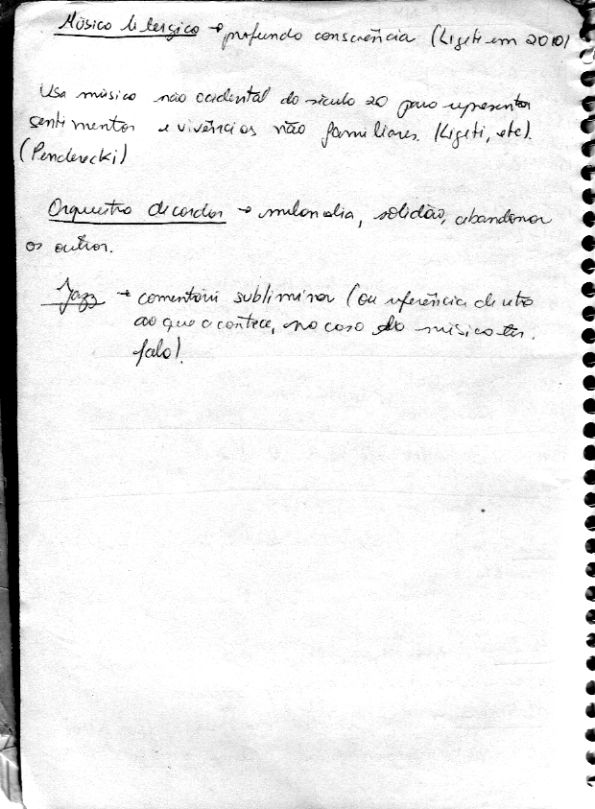 Música litúrgica → profunda consciência (Ligeti em 2010)
Usa música não ocidental do século 20 para representar
sentimentos e vivências não familiares. (Ligeti, etc).
(Penderecki)
Orquestra de cordas → melancolia, solidão, abandonar
os outros.
Jazz → comentário subliminar (ou referência direta
ao que acontece, no caso da música ter
fala).